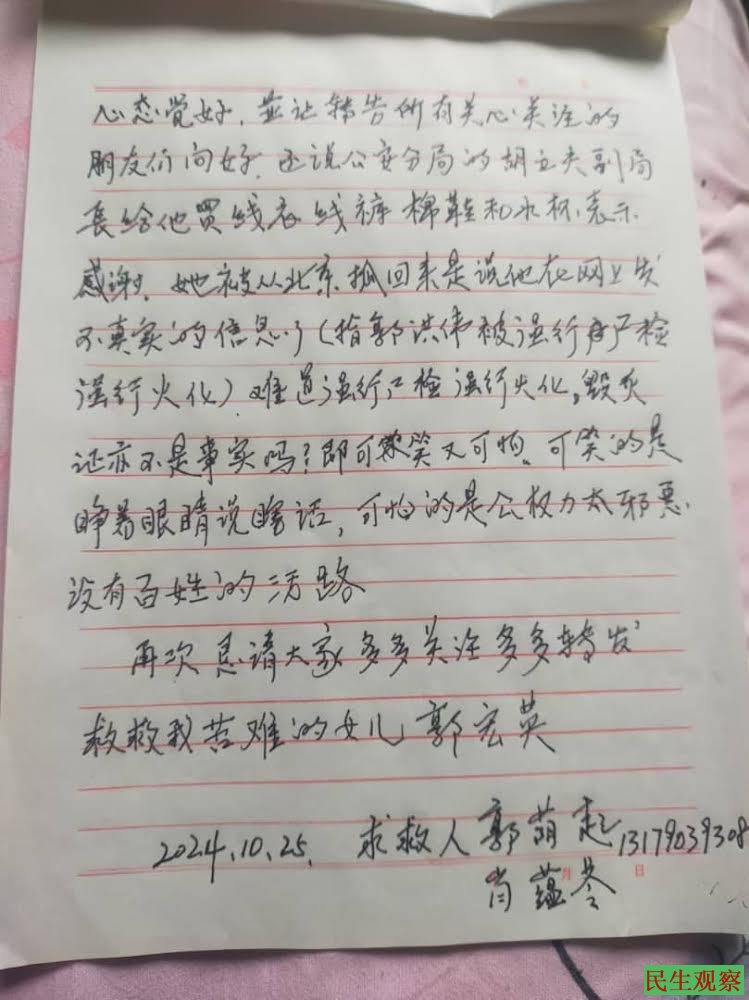 心态觉好，并让转告所有关心关注的
朋友们问好，还说公安分局的胡立夫副局
长给他买线衣线裤棉鞋和水杯，表示
感谢，她被从北京抓回来是说他在网上发
不真实的信息，（指郭洪伟被强行尸检
强行火化）难道强行尸检强行火化，毁灭
证亦不是事实吗？即可笑又可怕，可笑的是
睁着眼睛说瞎话，可怕的是公权力太邪恶，
没有百姓的活路
再次恳请大家多多关注多多转发
救救我苦难的女儿郭宏英
2024.10.25. 求救人郭荫起13179039308
肖蕴苓
月 日
民生观察